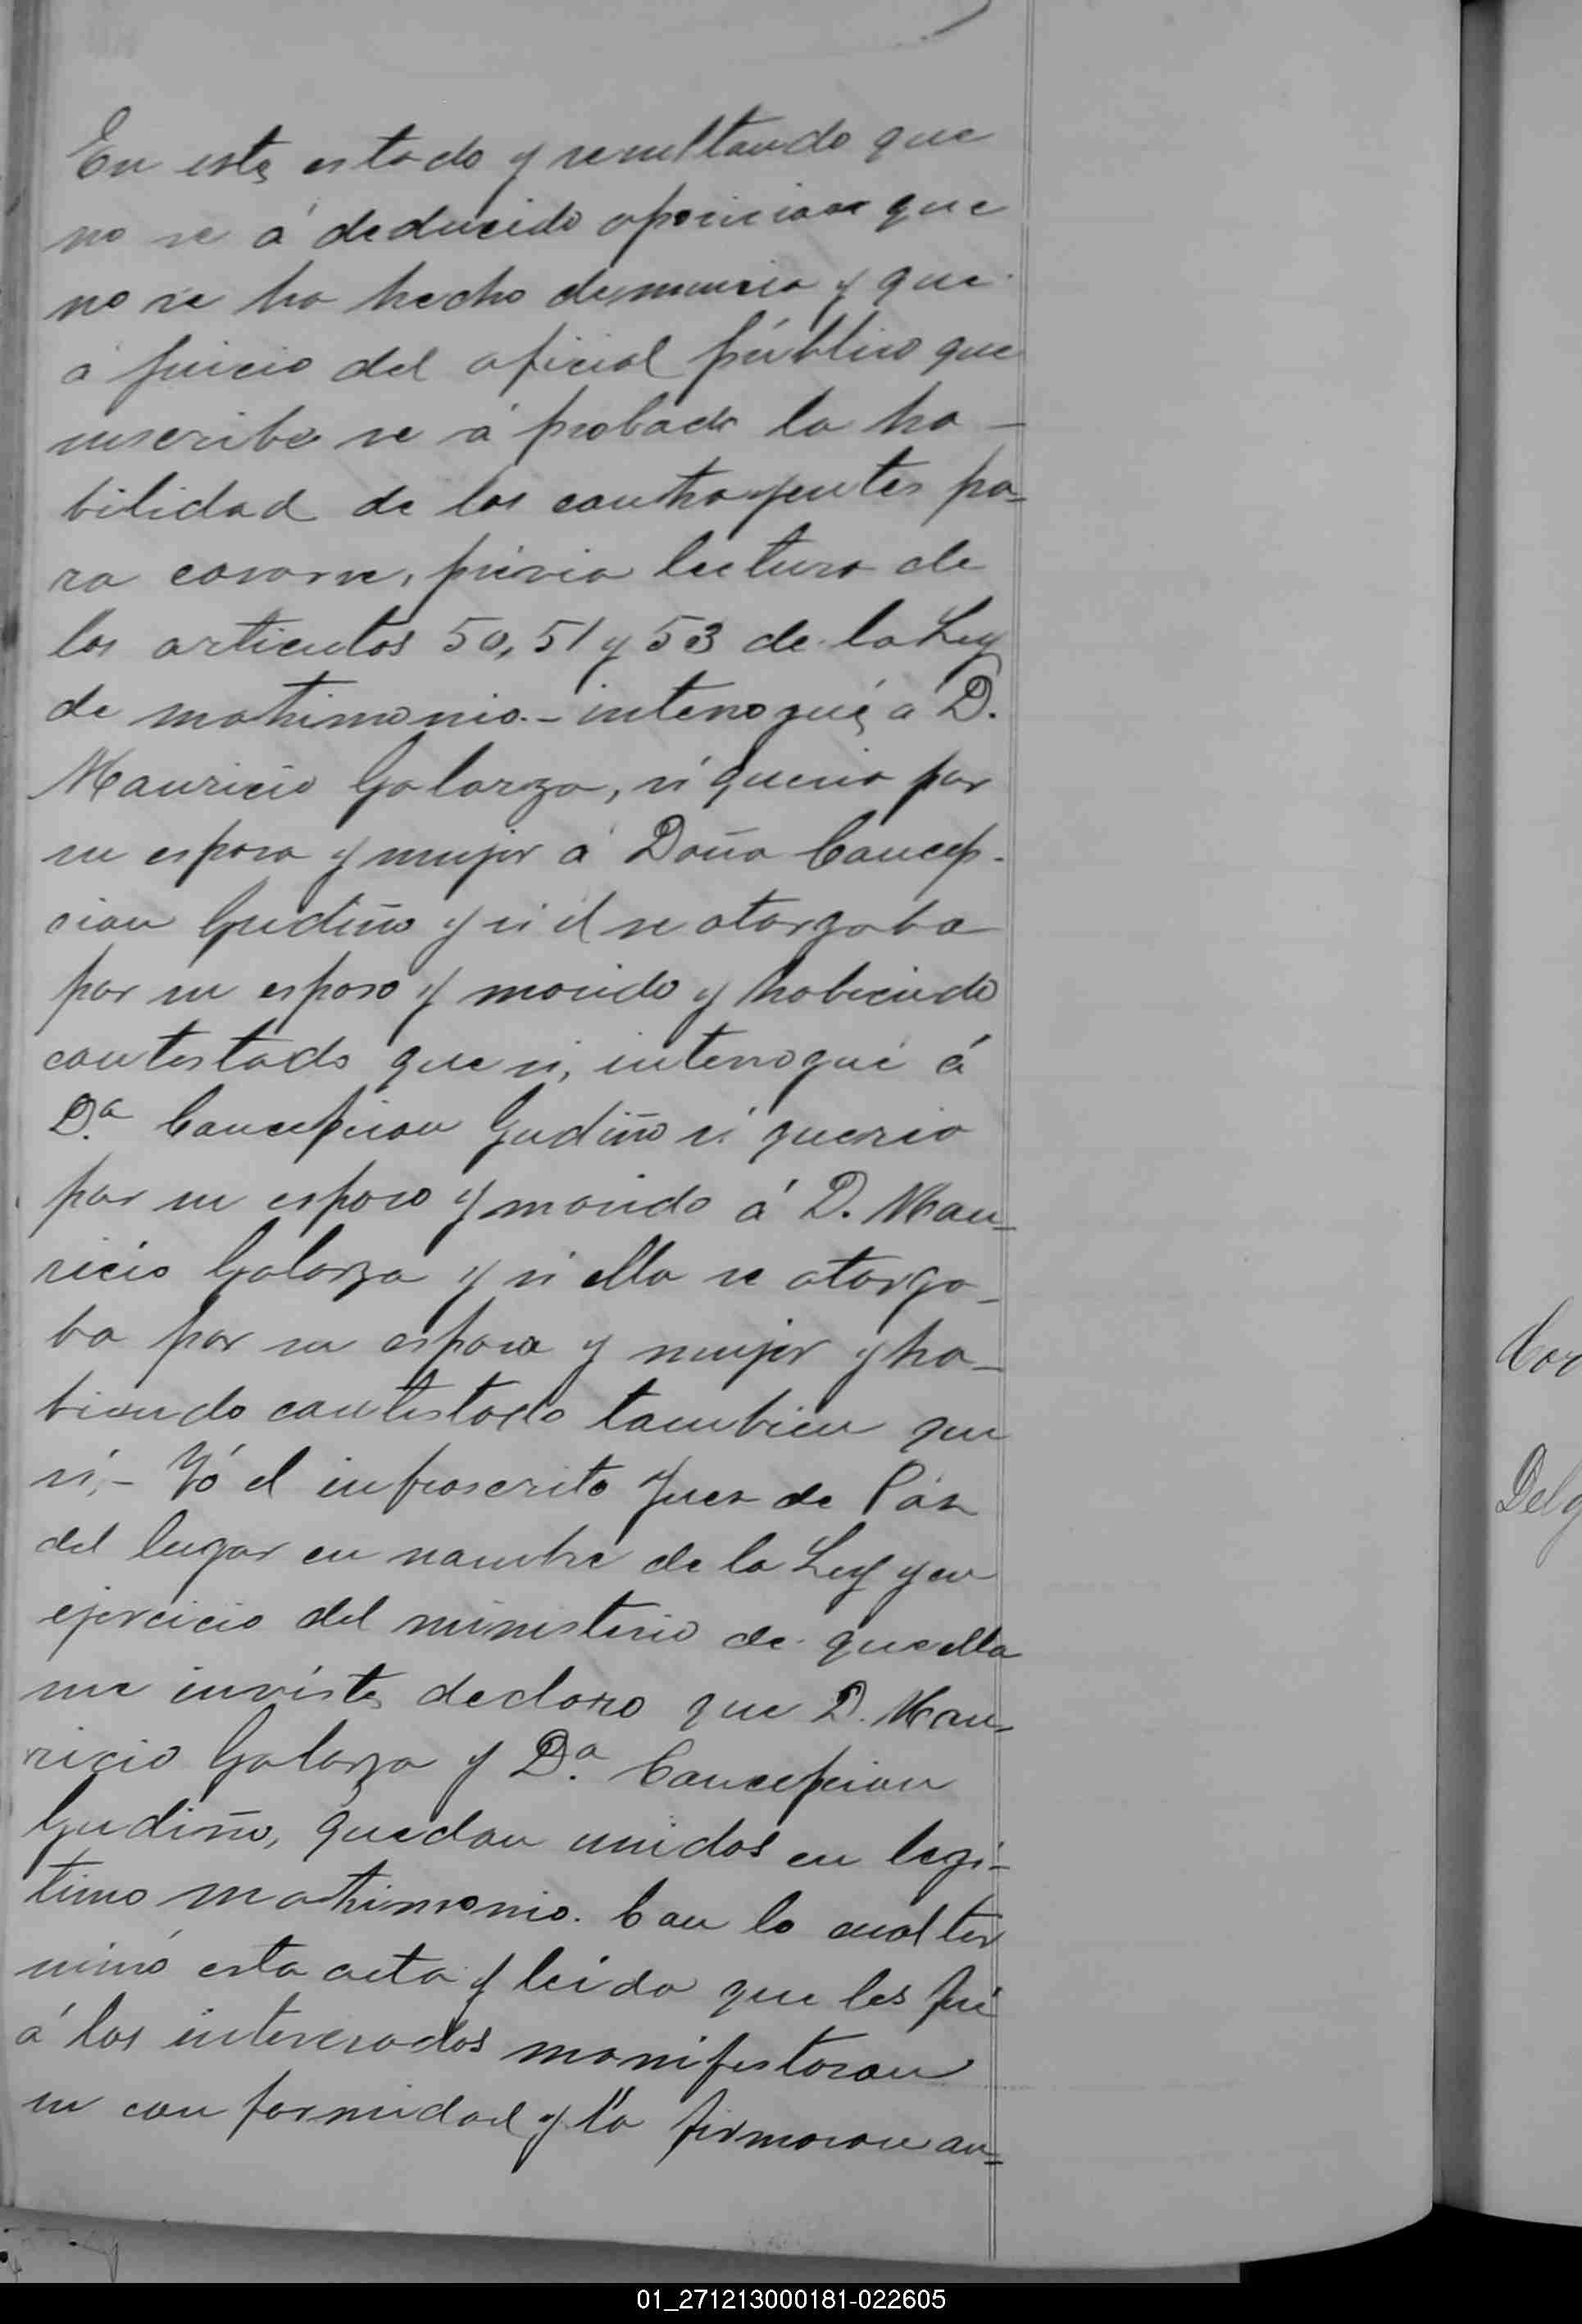 En este estado y resultando que
no se á deducido oposicion que
no se ha hecho denuncia y que
á juicio del oficial público que
suscribe se á probado la ha-
bilidad de los contrayentes pa-
ra casarse, prévia lectura de
los articulos 50, 51 y 53 de la Ley
de matrimonio.- interrogué á D.
Mauricio Galarza, si queria por
su esposa y mujer á Doña Concep-
cion Gudiño y si él se otorgaba
por su esposo y marido y habiendo
contestado que si, interrogué á
D.ª Concepcion Gudiño si queria
por su esposo y marido á D. Mau-
ricio Galarza y si ella se otorga-
ba por su esposa y mujer y ha-
biendo contestado tambien que
si,- Yó el infrascrito Juez de Páz
del lugar en nombre de la Ley y en
ejercicio del ministerio de que ella
me inviste declaro que D. Mau-
ricio Galarza y D.ª Concepcion
Gudiño, quedan unidos en legi-
timo matrimonio. Con lo cual ter
minó esta acta y leida que les fué
á los interesados manifestaron
su conformidad y la firmaron an-
Cor
Delg
01_271213000181-022605